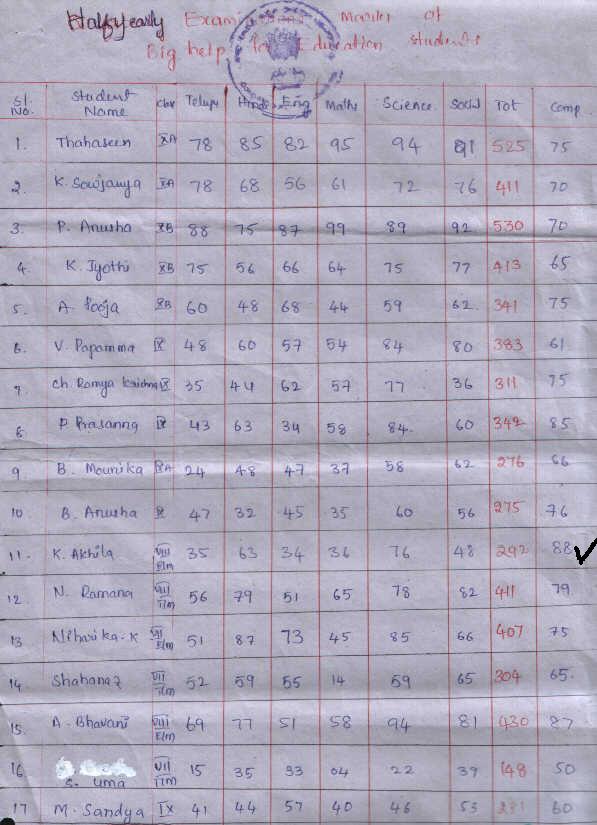 Halfyearly Examinations Marks of
Big help for Education students
Sl. No. Student Name Class Telugu Hindi Eng Maths Science Social Tot Comp
1. Thahaseen XA 78 85 82 95 94 91 525 75
2. K. Sowjanya XA 78 68 56 61 72 76 411 70
3. P. Anusha XB 88 75 87 99 89 92 530 70
4. K. Jyothi XB 75 56 66 64 75 77 413 65
5. A. Pooja XB 60 48 68 44 59 62 341 75
6. V. Papamma IX 48 60 57 54 84 80 383 61
7. Ch. Ramya Krishna IX 35 44 62 57 77 36 311 75
8 P Prasanna IX 43 63 34 58 84 60 342 85
9 B. Mounika IXA 24 48 47 37 58 62 276 66
10 B. Anusha IX 47 32 45 35 60 56 275 76
11. K. Akhila VIII E/m 35 63 34 36 76 48 292 88 ✓
12. N. Ramana VII T/m 56 79 51 65 78 82 411 79
13 Niharika. K VII E/m 51 87 73 45 85 66 407 75
14 Shahanaz VII T/m 52 59 55 14 59 65 304 65.
15. A. Bhavani VIII E/m 69 77 51 58 94 81 430 87
16 S. Uma VII T/m 15 35 33 04 22 39 148 50
17 M. Sandya IX 41 44 57 40 46 53 281 60